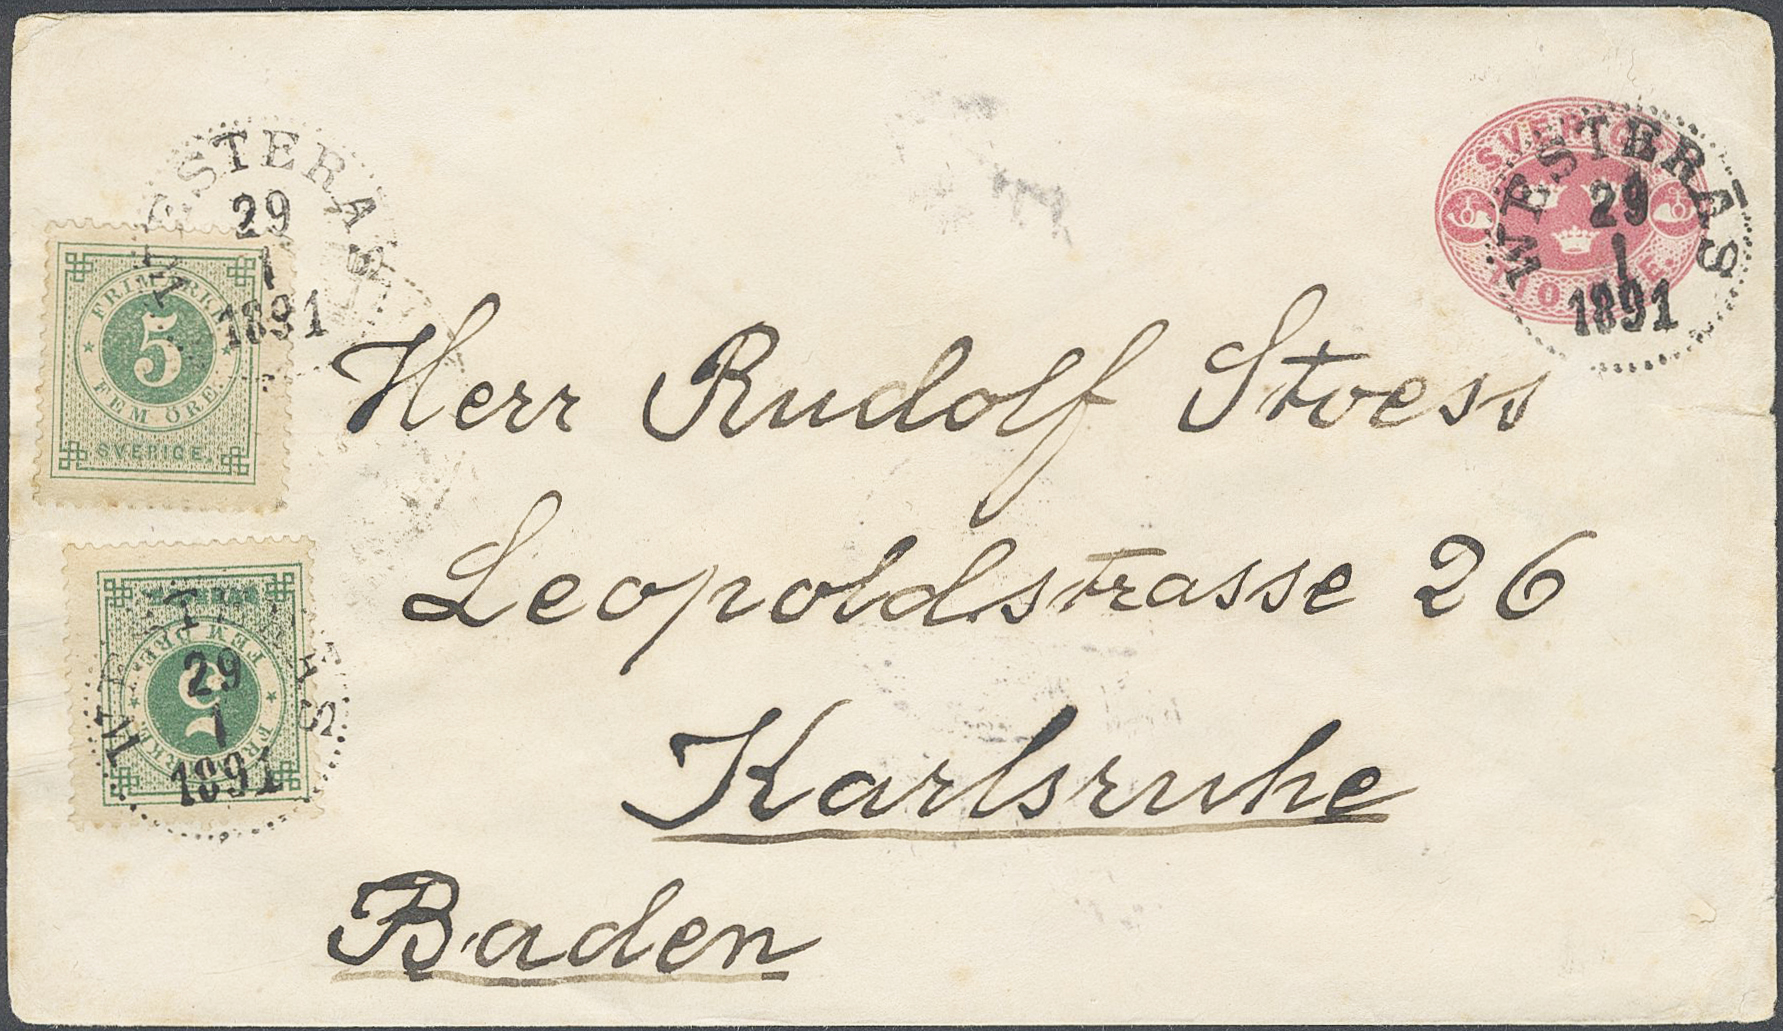 WESTERÅS
29
1
1891
FRIMÄRKE
5
FEM ÖRE.
SVERIGE.
SVERIGE
TIO ÖRE.
WESTERÅS
29
1
1891
Herr Rudolf Stoess
Leopoldstrasse 26
Karlsruhe
Baden
SVERIGE.
FEM ÖRE.
5
FRIMÄRKE
WESTERÅS
29
1
1891